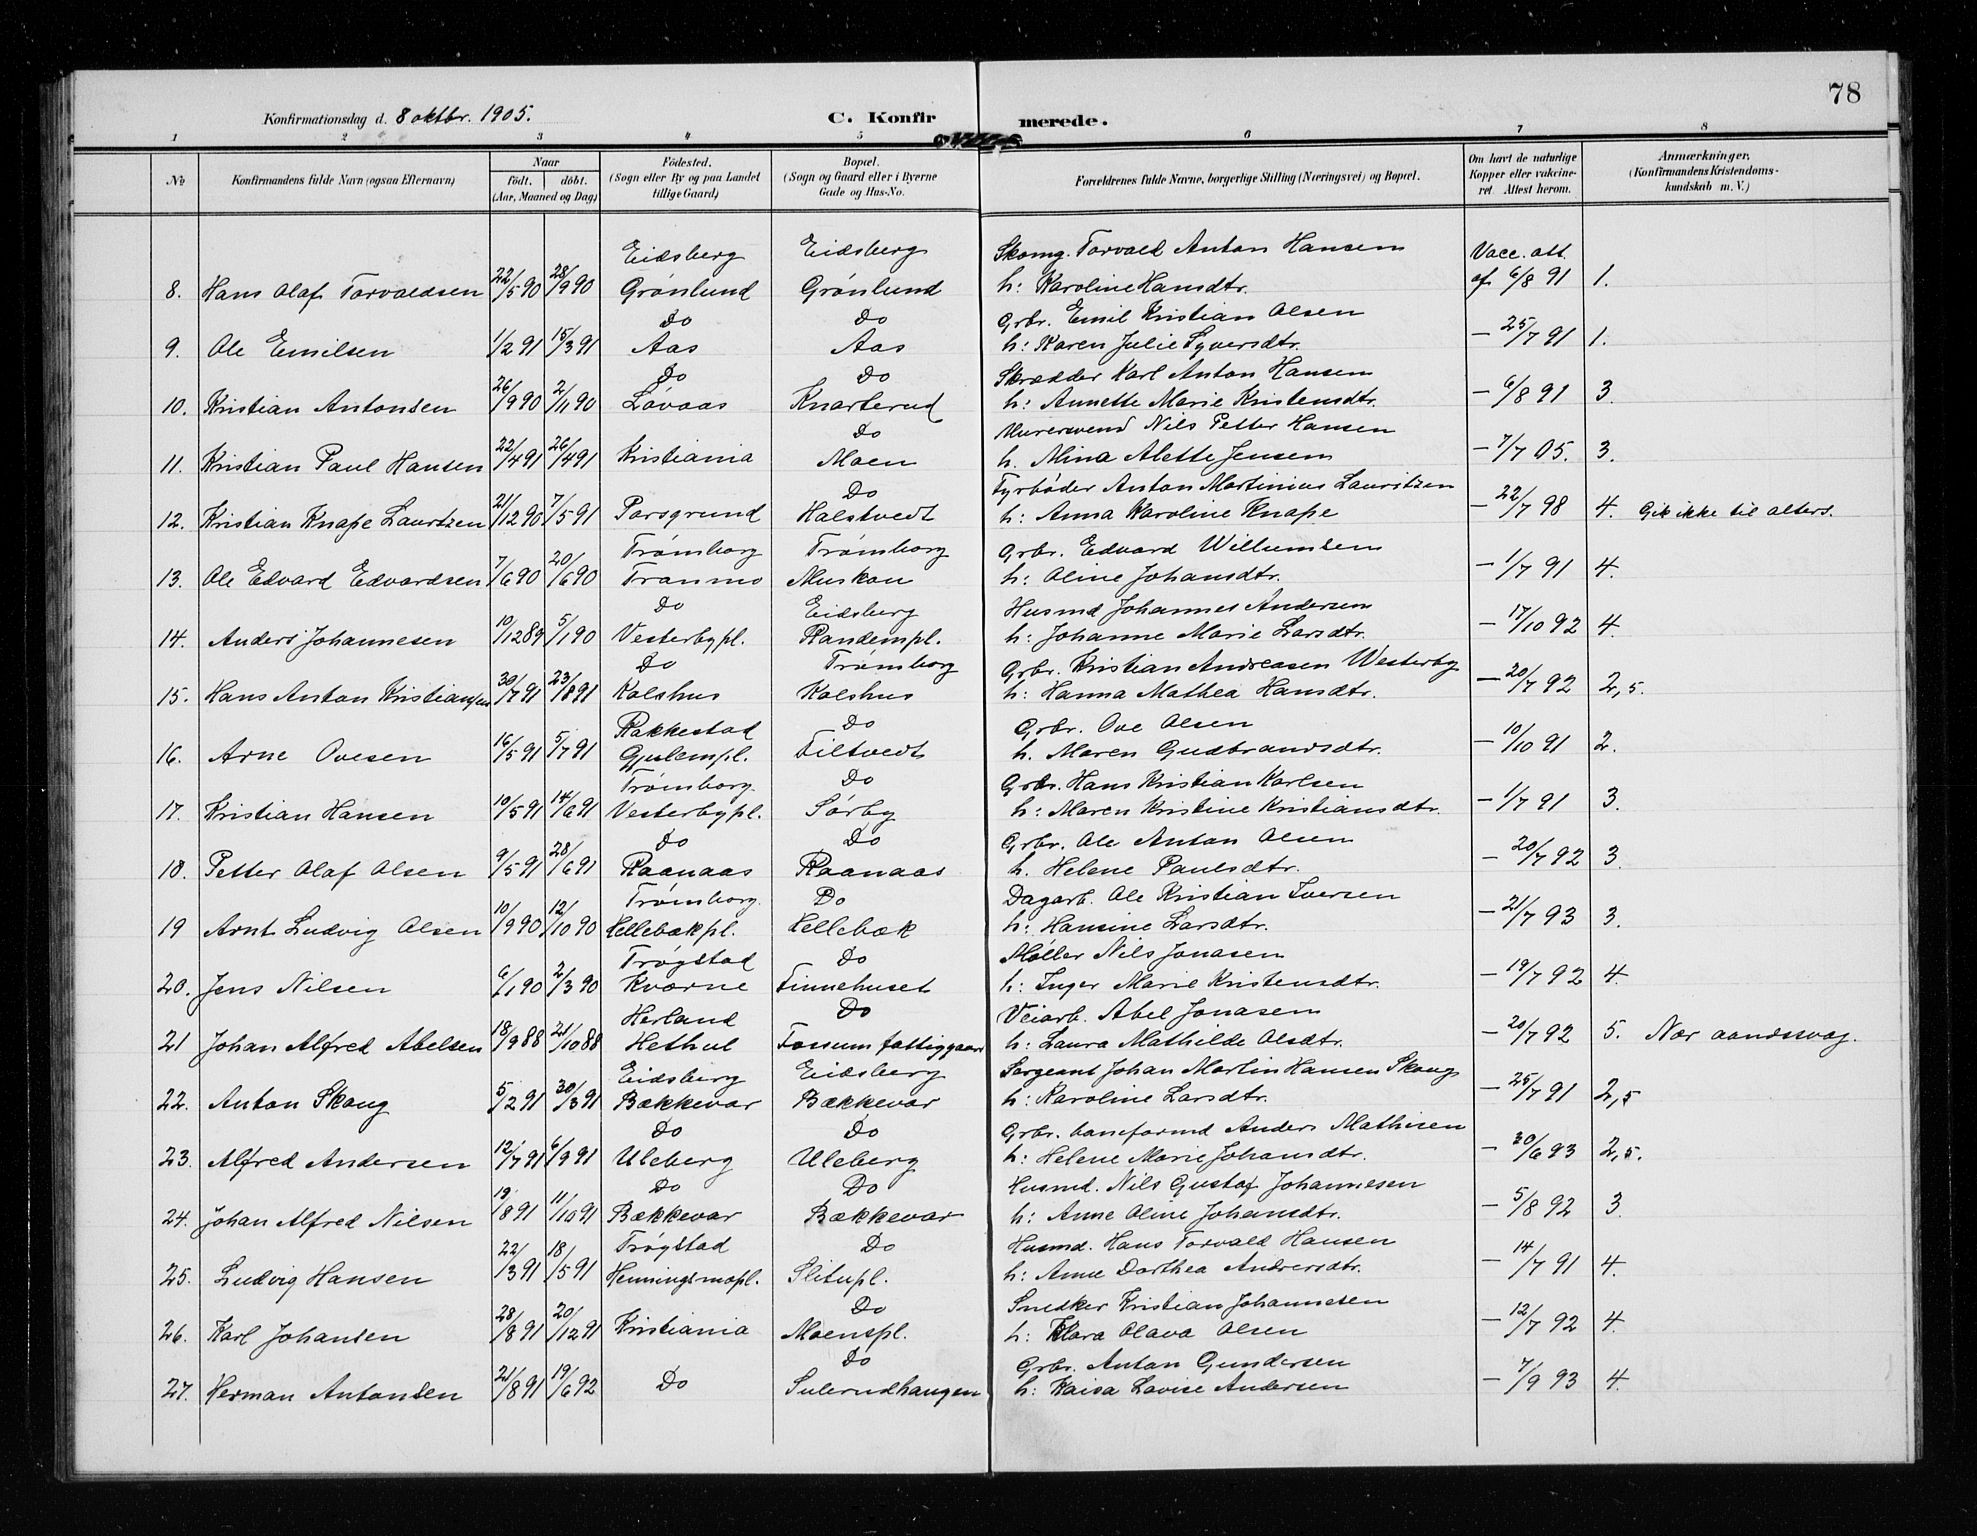 78
Konfirmationsdag d. 8 oktbr. 1905.
C. Konfirmerede.
1 2 3 4 5 6 7 8
No
Konfirmandens fulde Navn (ogsaa Efternavn)
Naar
født. døbt.
(Aar, Maaned og Dag)
Födested.
(Sogn eller By og paa Landet
tillige Gaard)
Bopæl.
(Sogn og Gaard eller i Byerne
Gade og Hus-No.
Forældrenes fulde Navne, borgerlige Stilling (Næringsvei) og Bopæl.
Om havt de naturlige
Kopper eller vakcine-
ret. Attest herom.
Anmærkninger.
(Konfirmandens Kristendoms-
kundskab m. V.)
Eidsberg Eidsberg Skomg. Torvald Anton Hansen Vacc. att.
8. Hans Olaf Torvaldsen 22/5 90 28/9 90 Grønlund Grønlund h: Karoline Hansdtr. af 6/8 91 1.
Do Do Grbr. Emil Kristian Olsen
9. Ole Emilsen 1/2 91 15/3 91 Aas Aas h: Karen Julie Syversdtr. — 25/7 91 1.
Do Do Skrædder Karl Anton Hansen
10. Kristian Antonsen 26/9 90 2/11 90 Løvaas Knarterud h: Annette Marie Kristensdtr. — 6/8 91 3.
Do Murersvend Nils Petter Hansen
11. Kristian Paul Hansen 22/4 91 26/4 91 Kristiania Moen h. Mina Alette Jensen — 7/7 05. 3.
Do Fyrbøder Anton Martinius Lauritzen
12. Kristian Knape Laurtzen 21/12 90 7/5 91 Porsgrund Halstvedt h: Anna Karoline Knape — 22/7 98 4. Gik ikke til alters.
Trømborg Trømborg Grbr. Edvard Willumsen
13. Ole Edvard Edvardsen 7/6 90 20/6 90 Tranmo Muskau h: Oline Johansdtr. — 1/7 91 4.
Do Eidsberg Husmd Johannes Andersen
14. Anders Johannesen 10/12 89 5/1 90 Vesterbypl. Randempl. h: Johanne Marie Larsdtr. — 17/10 92 4.
Do Trømborg Grbr. Kristian Andreasen Westerby
15. Hans Anton Kristiansen 30/7 91 23/8 91 Kolshus Kolshus h: Hanna Mathea Hansdtr. — 20/7 92 2,5.
Rakkestad Do Grbr. Ove Olsen
16. Arne Ovesen 16/5 91 5/7 91 Gjulempl. Tiltvedt h. Maren Gudbrandsdtr. — 10/10 91 2.
Trømborg. Do Grbr. Hans Kristian Karlsen
17. Kristian Hansen 10/5 91 14/6 91 Vesterbypl. Sørby h: Maren Kristine Kristiansdtr. — 1/7 91 3.
Do Do Grbr. Ole Anton Olsen
18. Petter Olaf Olsen 9/5 91 28/6 91 Raanaas Raanaas h. Helene Paulsdtr. — 20/7 92 3.
Trømborg. Do Dagarb. Ole Kristian Iversen
19 Arnt Ludvig Olsen 10/9 90 12/10 90 Hellebækpl. Hellebæk h: Hansine Larsdtr. — 21/7 93 3.
Trøgstad Do Møller Nils Jonasen
20. Jens Nilsen 6/1 90 2/3 90 Kværne Finnehuset h: Inger Marie Kristensdtr. — 19/7 92 4.
Herland Do Veiarb. Abel Jonasen
21 Johan Alfred Abelsen 18/9 88 21/10 88 Hethul Fossum fattiggaard h: Laura Mathilde Olsdtr. — 20/7 92 5. Nær aandssvag.
Eidsberg Eidsberg Sergeant Johan Martin Hansen Skoug
22. Anton Skoug 5/2 91 30/3 91 Bækkevar Bækkevar h: Karoline Larsdtr. — 25/7 91 2,5
Do Do Grbr. baneformd Anders Mathisen
23. Alfred Andersen 12/7 91 6/9 91 Uleberg Uleberg h: Helene Marie Johansdtr. — 30/6 93 2,5.
Do Do Husmd. Nils Gustaf Johannesen
24. Johan Alfred Nilsen 19/8 91 11/10 91 Bækkevar Bækkevar h: Anne Oline Johansdtr. — 5/8 92 3.
Trøgstad Do Husmd. Hans Torvald Hansen
25. Ludvig Hansen 22/3 91 18/5 91 Henningsmopl. Slitupl. h: Anne Dorthea Andersdtr. — 14/7 91 4.
Do Snedker Kristian Johannesen
26. Karl Johansen 28/8 91 20/12 91 Kristiania Moenspl. h: Klara Olava Olsen — 12/7 92 4.
Do Grbr. Anton Gundersen
27. Herman Antonsen 21/8 91 19/6 92 Do Sulerudhaugen h: Kaisa Lovise Andersen — 7/9 93 4.